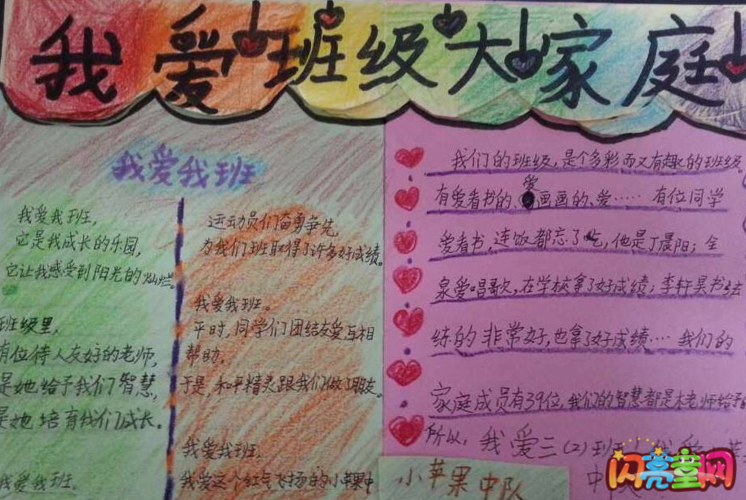 我爱班级大家庭
我爱我班
我爱我班,
它是我成长的乐园,
它让我感受到阳光的灿烂。
班级里,
有位待人友好的老师,
是她给予我们智慧,
是她培育我们成长。
我爱我班。
运动员们奋勇争先,
为我们班取得了许多好成绩。
我爱我班。
平时,同学们团结友爱互相
帮助,
于是,和平精灵跟我们做了朋友。
我爱我班。
我爱这个红气飞扬的小苹果中
我们的班级,是个多彩而又有趣的班级。
有爱看书的、爱画画的、爱……有位同学
爱看书,连饭都忘了吃,他是丁晨阳;全
泉爱唱歌,在学校拿了好成绩;李轩昊书法
练的非常好,也拿了好成绩……我们的
家庭成员有39位,我们的智慧都是林老师给予
所以,我爱三(2)班
小苹果中队
闪亮童网